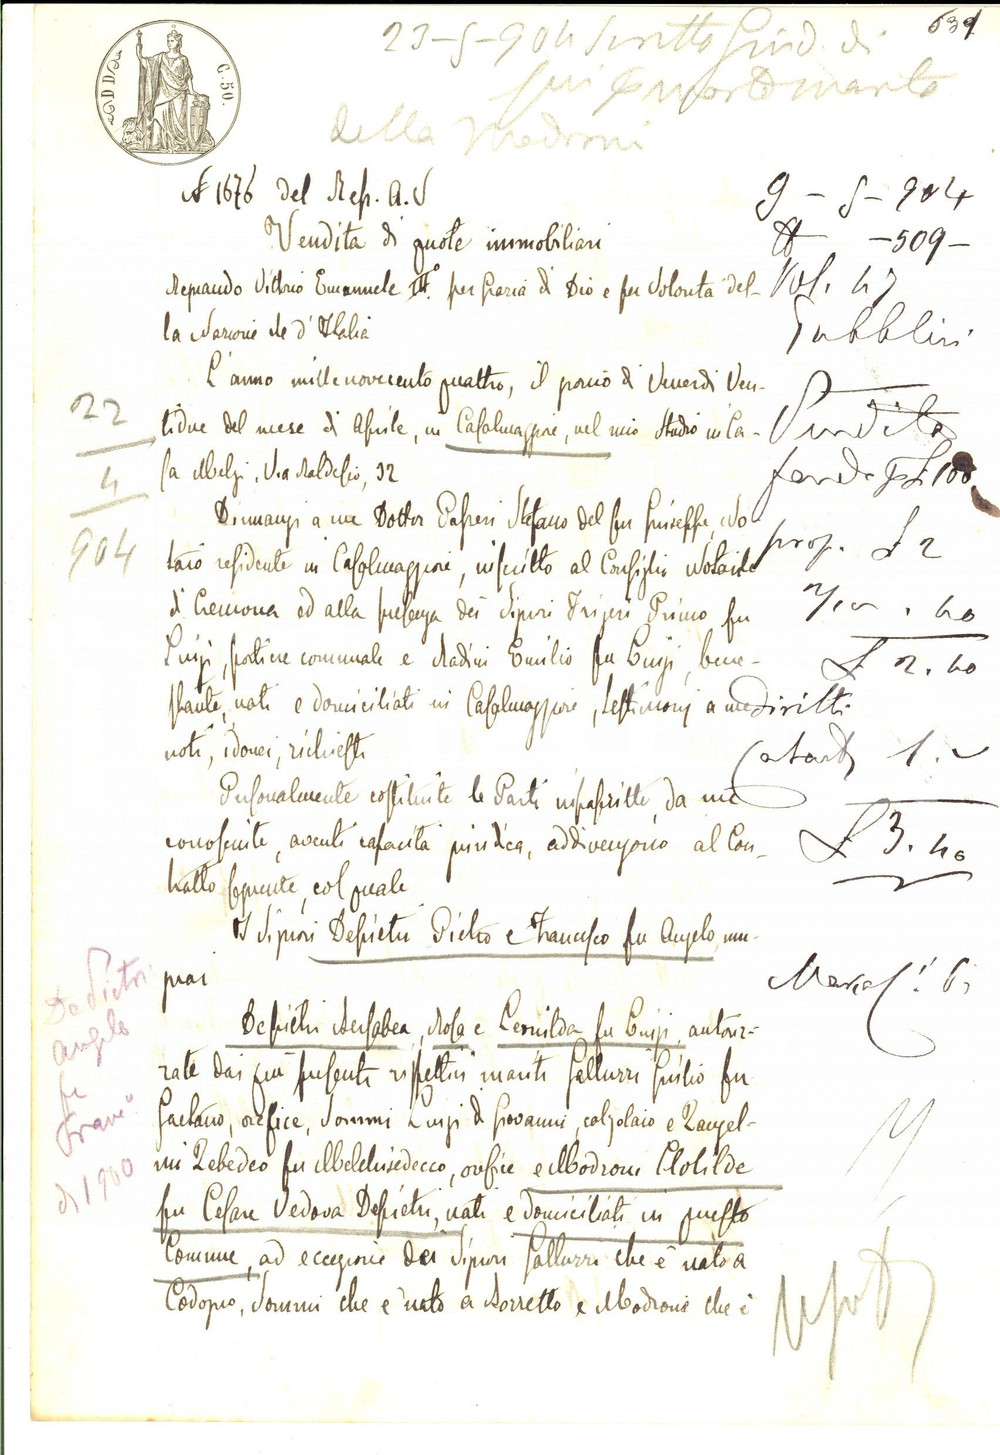 639
23-5-904 scritto Giud. di
della Modroni
DD
C. 50.
N 1676 del Rep. A. V
Vendita di quote immobiliari
Regnando Vittorio Emanuele III° per Grazia di Dio e per Volontà del-
la Nazione Re d'Italia
L'anno millenovecento quattro, il giorno di Venerdì Ven-
tidue del mese di Aprile, in Casalmaggiore, nel mio studio in Ca-
sa Melzi, Via Baldesio, 32
Dinnanzi a me Dottor Stefano del fu Giuseppe, No-
taro residente in Casalmaggiore, inscritto al Consiglio Notarile
di Cremona ed alla presenza dei Signori Primo fu
Luigi, portiere comunale e Radini Emilio fu Luigi, bene-
stante, nati e domiciliati in Casalmaggiore, testimonj a me
noti, idonei, richiesti
Personalmente costituite le Parti infrascritte, da me
conosciute, aventi capacità giuridica, addivengono al Con-
tratto seguente, col quale
I Signori Depietri Pietro e Francesco fu Angelo, mu-
gnai
Depietri, Rosa e Leonilda fu Luigi, autoriz-
zate dai qui presenti rispettivi mariti Galluzzi Giulio fu
Gaetano, orefice, Sommi Luigi di Giovanni, calzolaio e Rangel-
mi Zebedeo fu Melchisedecco, orefice e Modroni Clotilde
fu Cesare Vedova Depietri, nati e domiciliati in questo
Comune, ad eccezione dei Signori Galluzzi che è nato a
Codogno, Sommi che è nato a e Modroni che è
9-5-904
N -509-
Vol. 47
Pubblici
Vendita
L 100
prop. L 2
.40
L 2.40
diritti
Catasto 1.-
L 3.40
22
4
904
De Pietri
Angelo
fu
di 1900